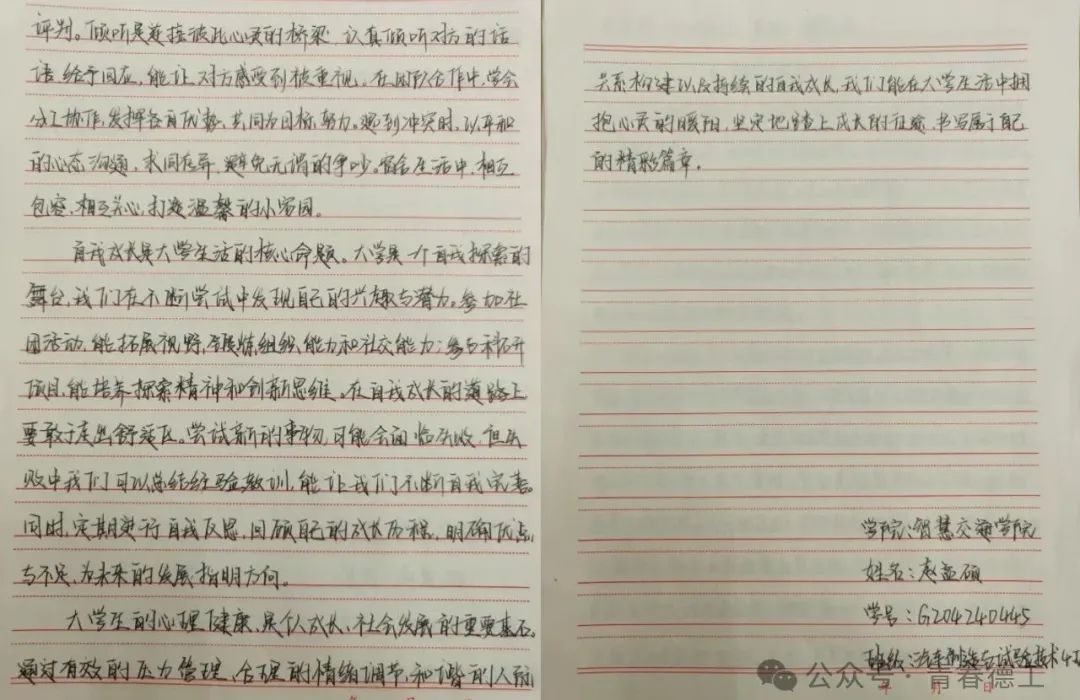 评判。倾听是连接彼此心灵的桥梁,认真倾听对方的话
语给予回应,能让对方感受到被重视。在团队合作中,学会
分工协作,发挥各自优势,共同为目标努力。遇到冲突时,以平和
的心态沟通,求同存异,避免无谓的争吵。宿舍生活中,相互
包容,相互关心,打造温馨的小家园。
自我成长是大学生活的核心命题。大学是一个自我探索的
舞台,我们在不断尝试中发现自己的兴趣与潜力。参加社
团活动,能拓展视野,锻炼组织能力和社交能力;参与科研
项目,能培养探索精神和创新思维。在自我成长的道路上
要敢于走出舒适区。尝试新的事物,可能会面临失败,但失
败中我们可以总结经验教训,能让我们不断自我完善。
同时,定期进行自我反思,回顾自己的成长历程,明确优点
与不足,为未来的发展指明方向。
大学生的心理健康,是个人成长、社会发展的重要基石。
通过有效的压力管理、合理的情绪调节、和谐的人际
关系构建以及持续的自我成长,我们能在大学生活中拥
抱心灵的暖阳,坚定地踏上成长的征途,书写属于自己
的精彩篇章。
学院:智慧交通学院
姓名:赵孟硕
学号:G204240445
班级:汽车制造与试验技术4班
公众号·青春德工
年 月 日